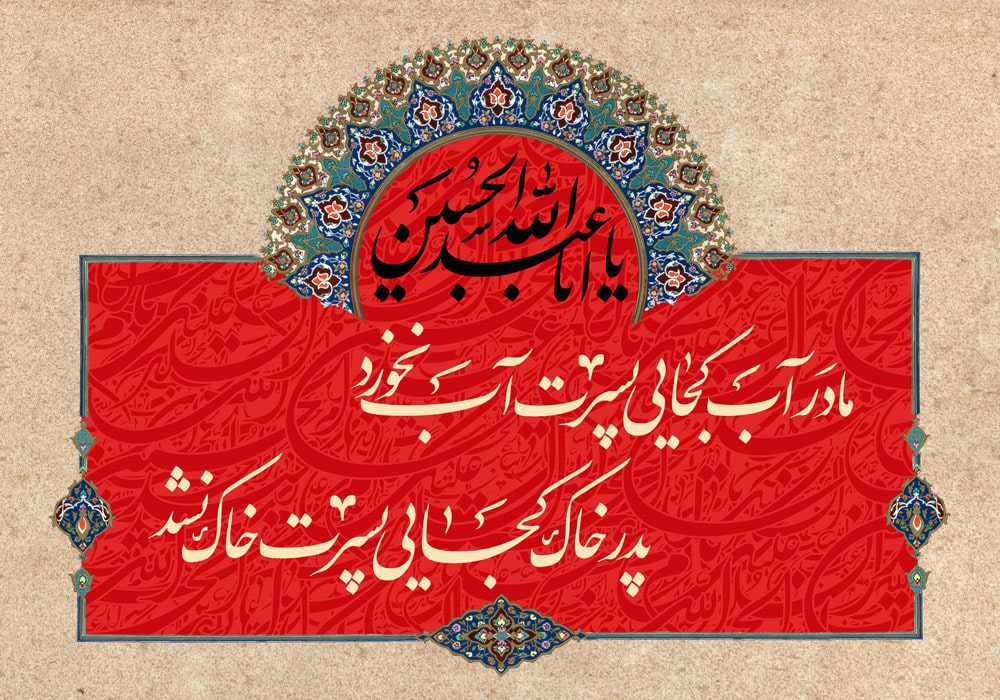 یا اباعبدالله الحسین
مادر آب کجایی پسرت آب نخورد
پدر خاک کجایی پسرت خاک نشد